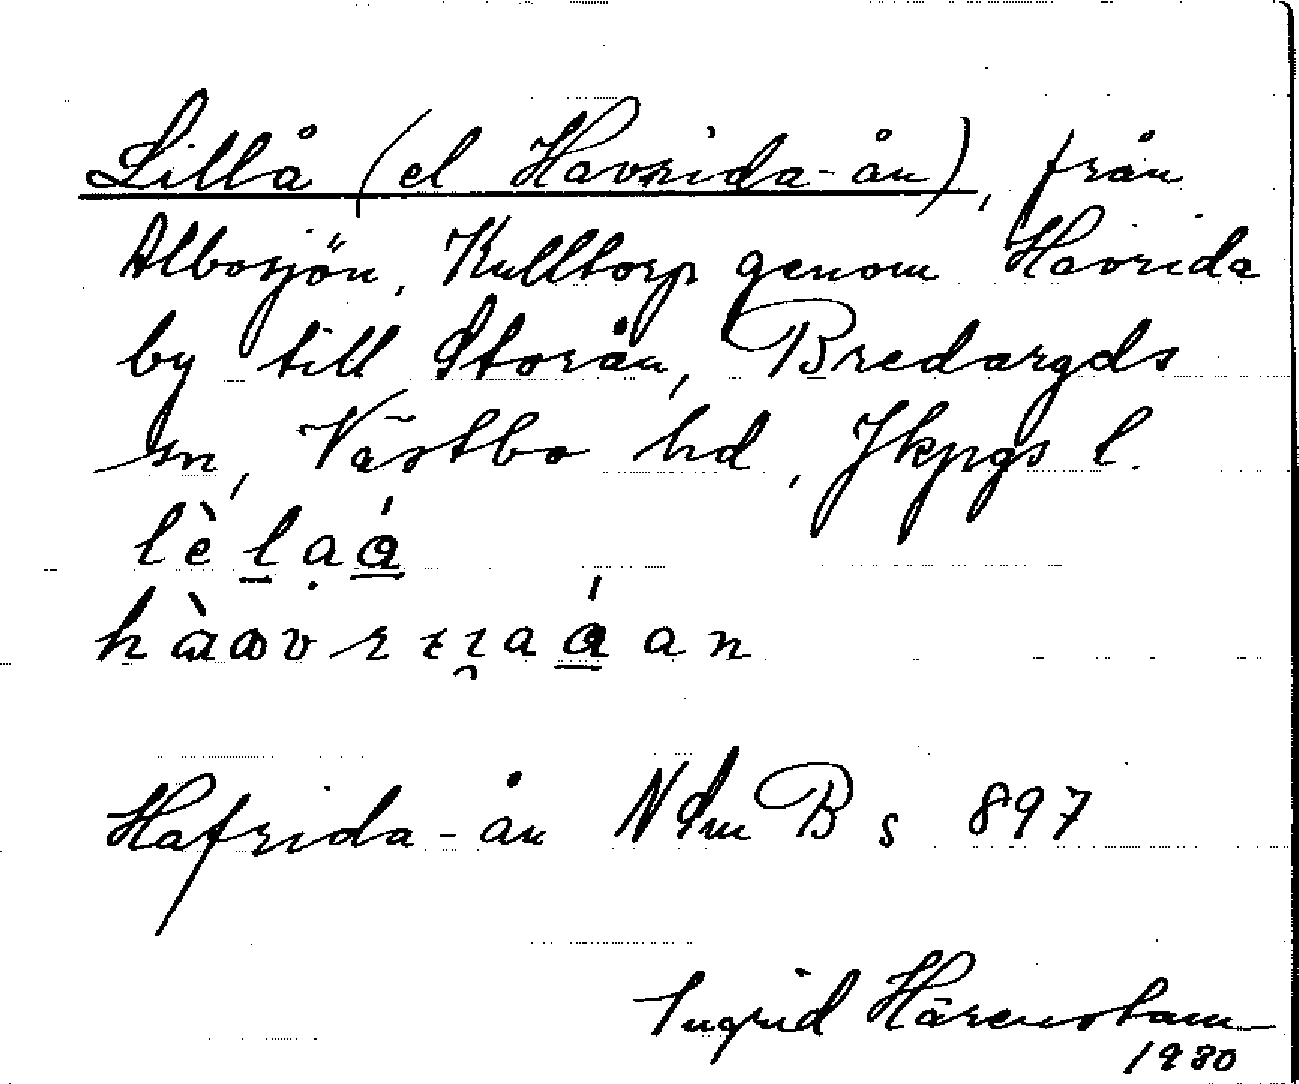 Lillå (el Havrida-ån), från
Albosjön, Kulltorp genom Havrida
by till Storån, Bredargds
sn, Västbo hd, Jkpgs l.
Hafrida-ån NSm B s 897
Ingrid Härenstam
1930